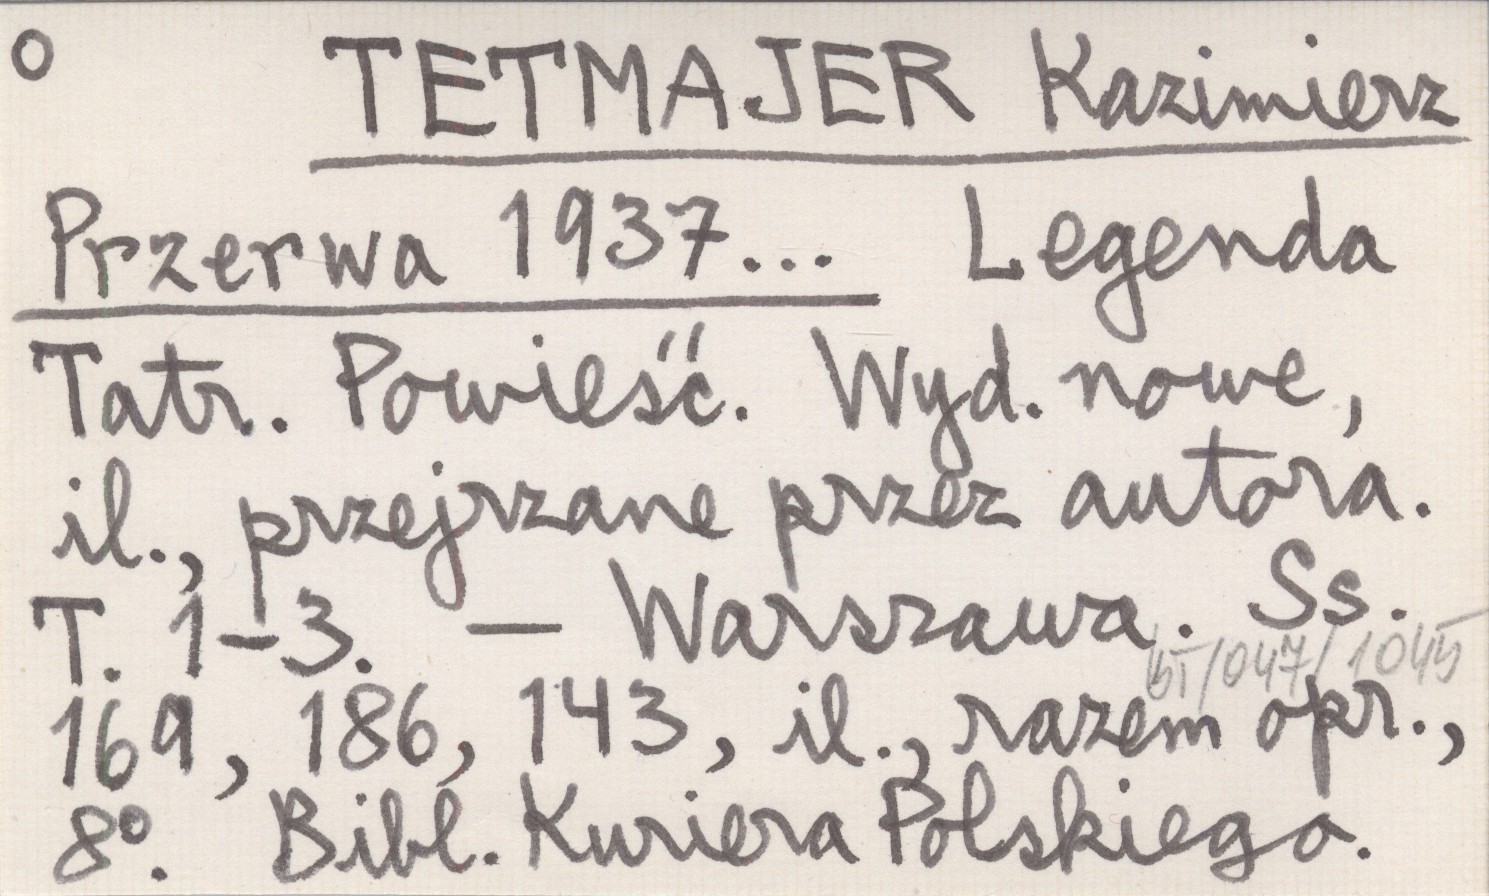 O TETMAJER Kazimierz
Przerwa 1937... Legenda
Tatr. Powieść. Wyd. nowe,
il., przejrzane przez autora.
T. 1-3. — Warszawa. Ss.
169, 186, 143, il., razem opr.,
8°. Bibl. Kuriera Polskiego.